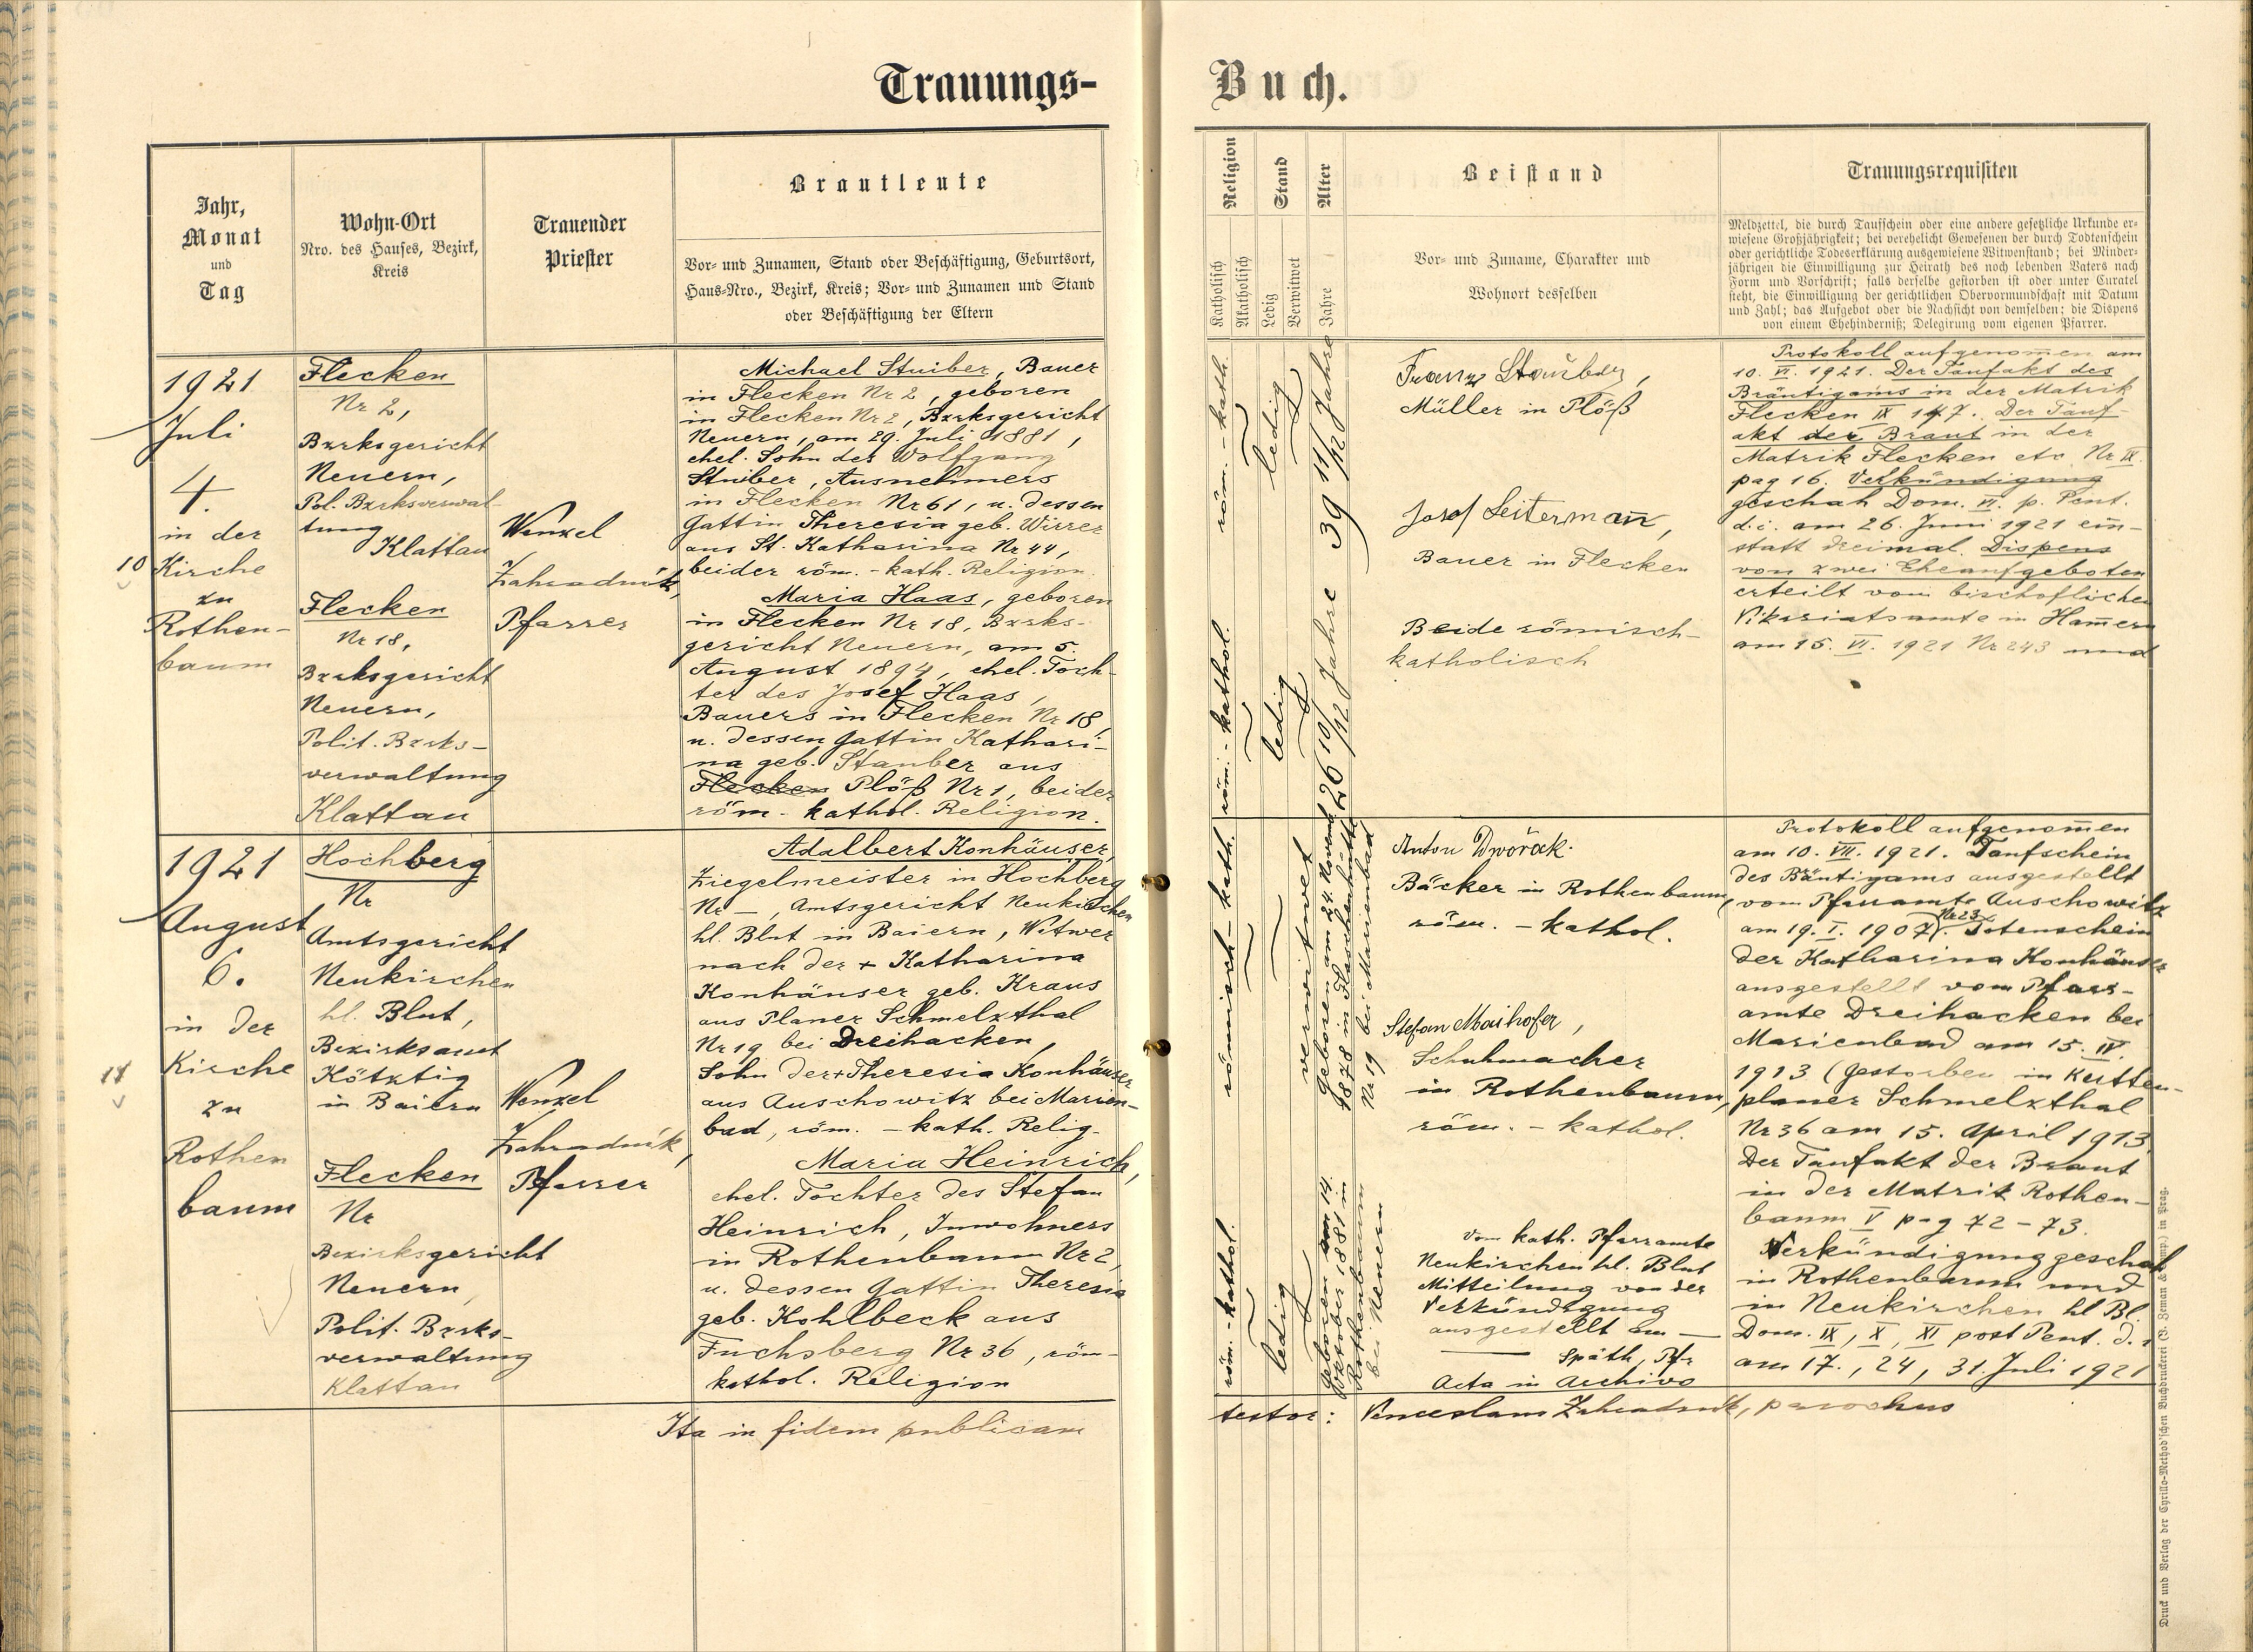 Trauungs-
Buch.
Jahr,
Monat
und
Tag
Wohn-Ort
Nro. des Hauses, Bezirk,
Kreis
Trauender
Priester
Brautleute
Vor- und Zunamen, Stand oder Beschäftigung, Geburtsort,
Haus-Nro., Bezirk, Kreis; Vor- und Zunamen und Stand
oder Beschäftigung der Eltern
Religion
Katholisch
Akatholisch
Stand
Ledig
Verwitwet
Alter
Jahre
Beistand
Vor- und Zuname, Charakter und
Wohnort desselben
Trauungsrequisiten
Meldzettel, die durch Taufschein oder eine andere gesetzliche Urkunde er-
wiesene Großjährigkeit; bei verehelicht Gewesenen der durch Todtenschein
oder gerichtliche Todeserklärung ausgewiesene Witwenstand; bei Minder-
jährigen die Einwilligung zur Heirath des noch lebenden Vaters nach
Form und Vorschrift; falls derselbe gestorben ist oder unter Curatel
steht, die Einwilligung der gerichtlichen Obervormundschaft mit Datum
und Zahl; das Aufgebot oder die Nachsicht von demselben; die Dispens
von einem Ehehinderniß; Delegirung vom eigenen Pfarrer.
10
1921
Juli
4.
in der
Kirche
zu
Rothen-
baum
Flecken
Nr 2,
Bzrksgericht
Neuern,
Pol. Bzrksverwal-
tung
Klattau
Flecken
Nr 18,
Bzrksgericht
Neuern,
Polit. Bzrks-
verwaltung
Klattau
Wenzel
Zahradník,
Pfarrer
Michael Stuiber, Bauer
in Flecken Nr 2, geboren
in Flecken Nr 2, Bzrksgericht
Neuern, am 29. Juli 1881,
ehel. Sohn des Wolfgang
Stuiber, Ausnehmers
in Flecken Nr 61, u. dessen
Gattin Theresia geb. Wirrer
aus St. Katharina Nr 44,
beider röm.-kath. Religion.
Maria Haas, geboren
in Flecken Nr 18, Bzrks-
gericht Neuern, am 5.
August 1894, ehel. Toch-
ter des Josef Haas,
Bauers in Flecken Nr 18,
u. dessen Gattin Kathari-
na geb. Stauber aus
Flecken Plöß Nr 1, beider
röm.- kathol. Religion.
röm.-kath.
ledig
39 11/12 Jahre
röm.-kathol.
ledig
26 10/12 Jahre
Franz Stauber,
Müller in Plöß
Josef Leitermañ,
Bauer in Flecken
Beide römisch-
katholisch
Protokoll aufgenom̄en am
10. VI. 1921. Der Taufakt des
Bräutigams in der Matrik
Flecken IX 147. Der Tauf-
akt der Braut in der
Matrik Flecken etc Nr IX.
pag 16. Verkündigung
geschah Dom. VI. p. Pent.
d.i. am 26. Juni 1921 ein-
statt dreimal. Dispens
von zwei Eheaufgeboten
erteilt vom bischöflichen
Vikariatsamte in Ham̄ern
am 15. VI. 1921 Nr 243 und
11
1921
August
6.
in der
Kirche
zu
Rothen
baum
Hochberg
Nr
Amtsgericht
Neukirchen
hl. Blut,
Bezirksamt
Kötztig
in Baiern
Flecken
Nr
Bezirksgericht
Neuern,
Polit. Bzrks-
verwaltung
Klattau
Wenzel
Zahradník,
Pfarrer
Adalbert Konhäuser,
Ziegelmeister in Hochberg
Nr —, Amtsgericht Neukirchen
hl. Blut in Baiern, Witwer
nach der + Katharina
Konhäuser geb. Kraus
aus Planer Schmelzthal
Nr 19 bei Dreihacken,
Sohn der + Theresia Konhäuser
aus Auschowitz bei Marien-
bad, röm. - kath. Relig.
Maria Heinrich,
ehel. Tochter des Stefan
Heinrich, Inwohners
in Rothenbaum Nr 2,
u. dessen Gattin Theresia
geb. Kohlbeck aus
Fuchsberg Nr 36, röm-
kathol. Religion
römisch-kath.
verwitwet
Geboren am 24. Novemb
1878 in Flaschenhütte
Nr 19 bei Marienbad
röm.-kathol.
ledig
Geboren am 14.
Oktober 1881 in
Rothenbaum
bei Neuern
Anton Dwořak.
Bäcker in Rothenbaum,
röm. - kathol.
Stefan Maihofer,
Schuhmacher
in Rothenbaum,
röm. - kathol.
Vom kath. Pfarramte
Neukirchen hl. Blut
Mitteilung von der
Verkündigung
ausgestellt am —
— Späth, Pfr
Acta in Archivo
Protokoll aufgenom̄en
am 10. VII. 1921. Taufschein
des Bäutigams ausgestellt
vom Pfarramte Auschowitz
am 19. I. 1907 Nr 23. Totenschein
der Katharina Konhäuser
ausgestellt vom Pfarr-
amte Dreihacken bei
Marienbad am 15. IV.
1913 (gestorben in Kutten-
planer Schmelzthal
Nr 36 am 15. April 1913.
Der Taufakt der Braut
in der Matrik Rothen-
baum V pag 72-73.
Verkündigung geschah
in Rothenbaum und
in Neukirchen hl Bl.
Dom. IX, X, XI post Pent. d. i
am 17., 24, 31. Juli 1921
Ita in fidem publicam
testor: Venceslaus Zahradník, parochus
Druck und Verlag der Cyrillo-Method'schen Buchdruckerei (V. Zeman & Comp.) in Prag.